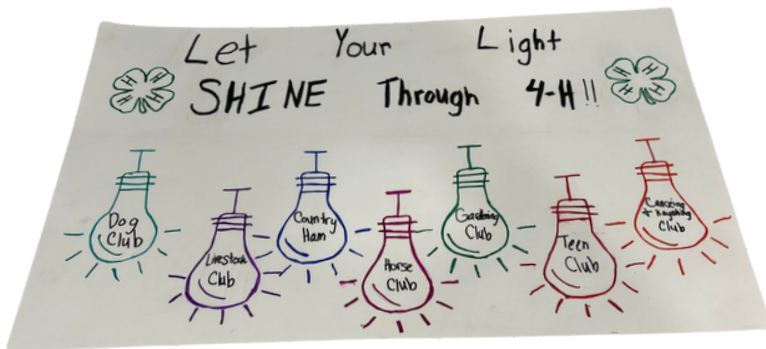 Let Your Light
SHINE Through 4-H!!
H H H H
H H H H
Dog
Club
Livestock
Club
Country
Ham
Horse
Club
Gardening
Club
Teen
Club
Canoeing
+ Kayaking
Club